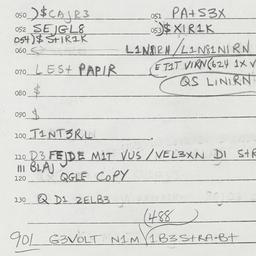 050 )$CAJR3 051 PA+S3X
052 SEJGL8 053)$XIR1K
054)$S+IR1K
060 L1NDRN/L1N81N1RN
070 LES+ PAPIR ETI+ VIRN(624 1X V
080 $ QS LINIRN
090 $
100 T1NT3RL
110 D3 FEJDE M1T VUS/VEL3XN D1 S+R
111 BLAJ
120 QGLE COPY
130 Q D1 2ELB3
(488
901 G3VOLT N1M 1B3S+RA·B+